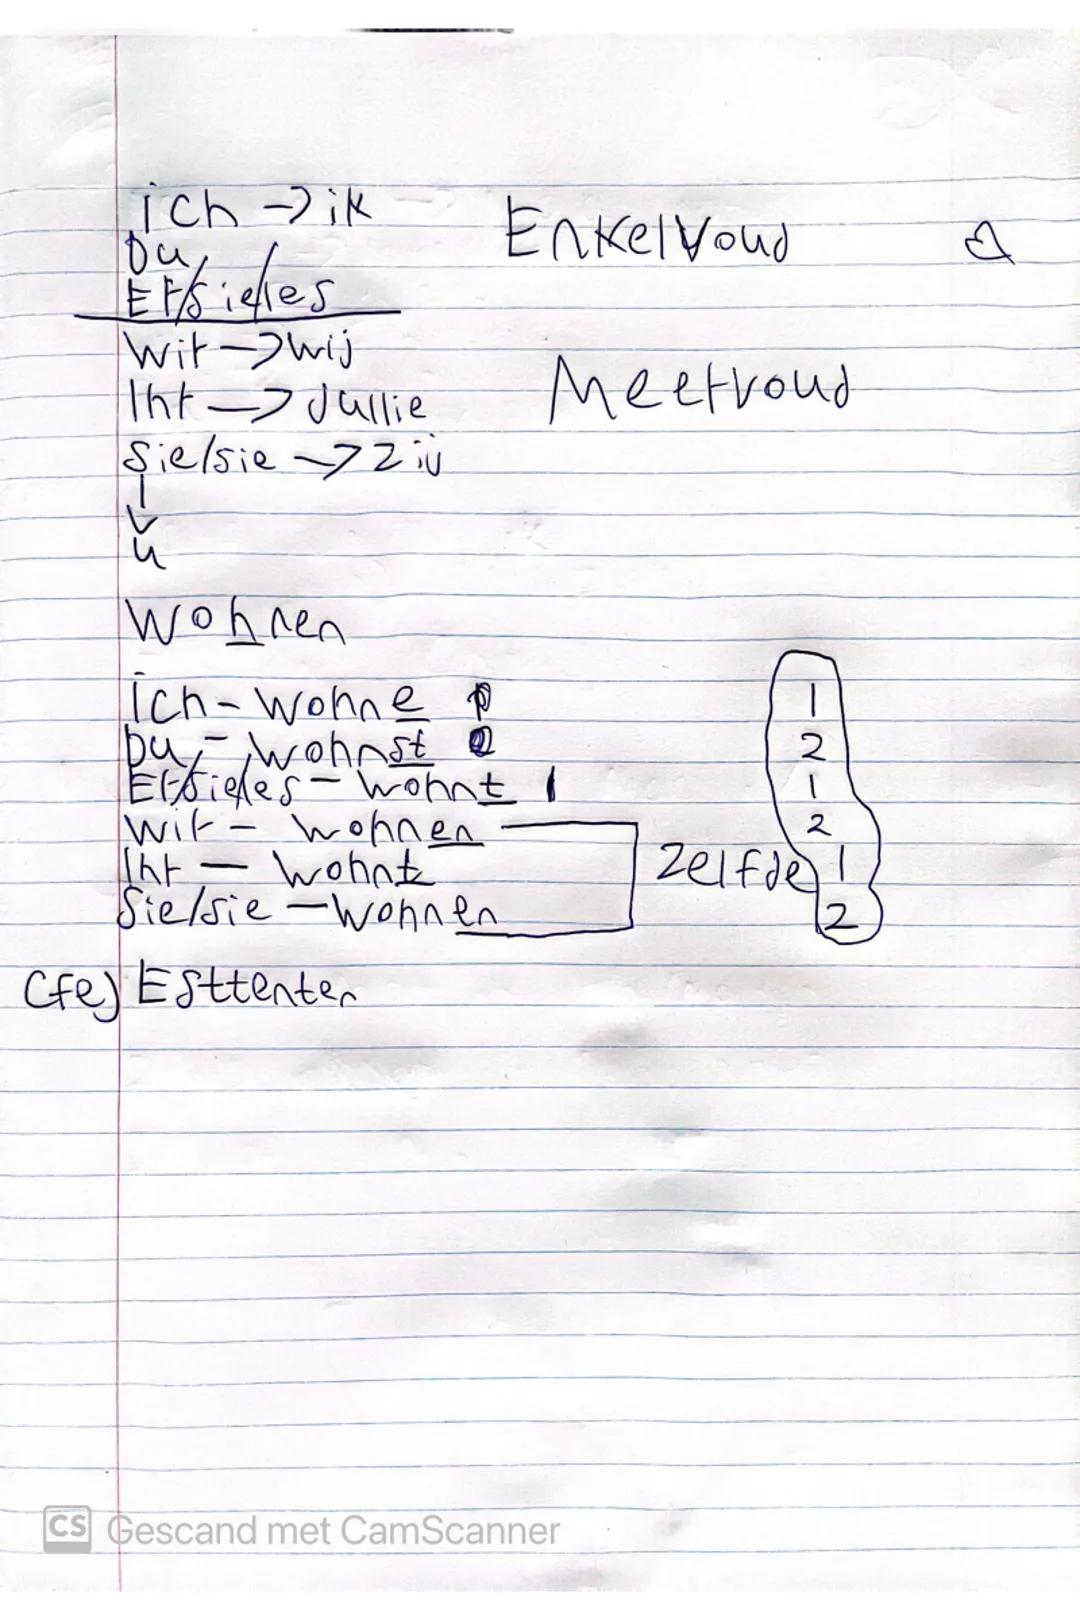 ich → ik Enkelvoud
Du
Er/sie/es
Wir → wij
Ihr → Jullie Meervoud
Sie/sie → zij
↓
u
Wohnen
ich - wohne 1
Du - wohnst 2
Er/sie/es - wohnt 1 1
Wir - wohnen 2
Ihr - wohnt zelfde 1
Sie/sie - wohnen 2
(fe) Esttenten
CS Gescand met CamScanner